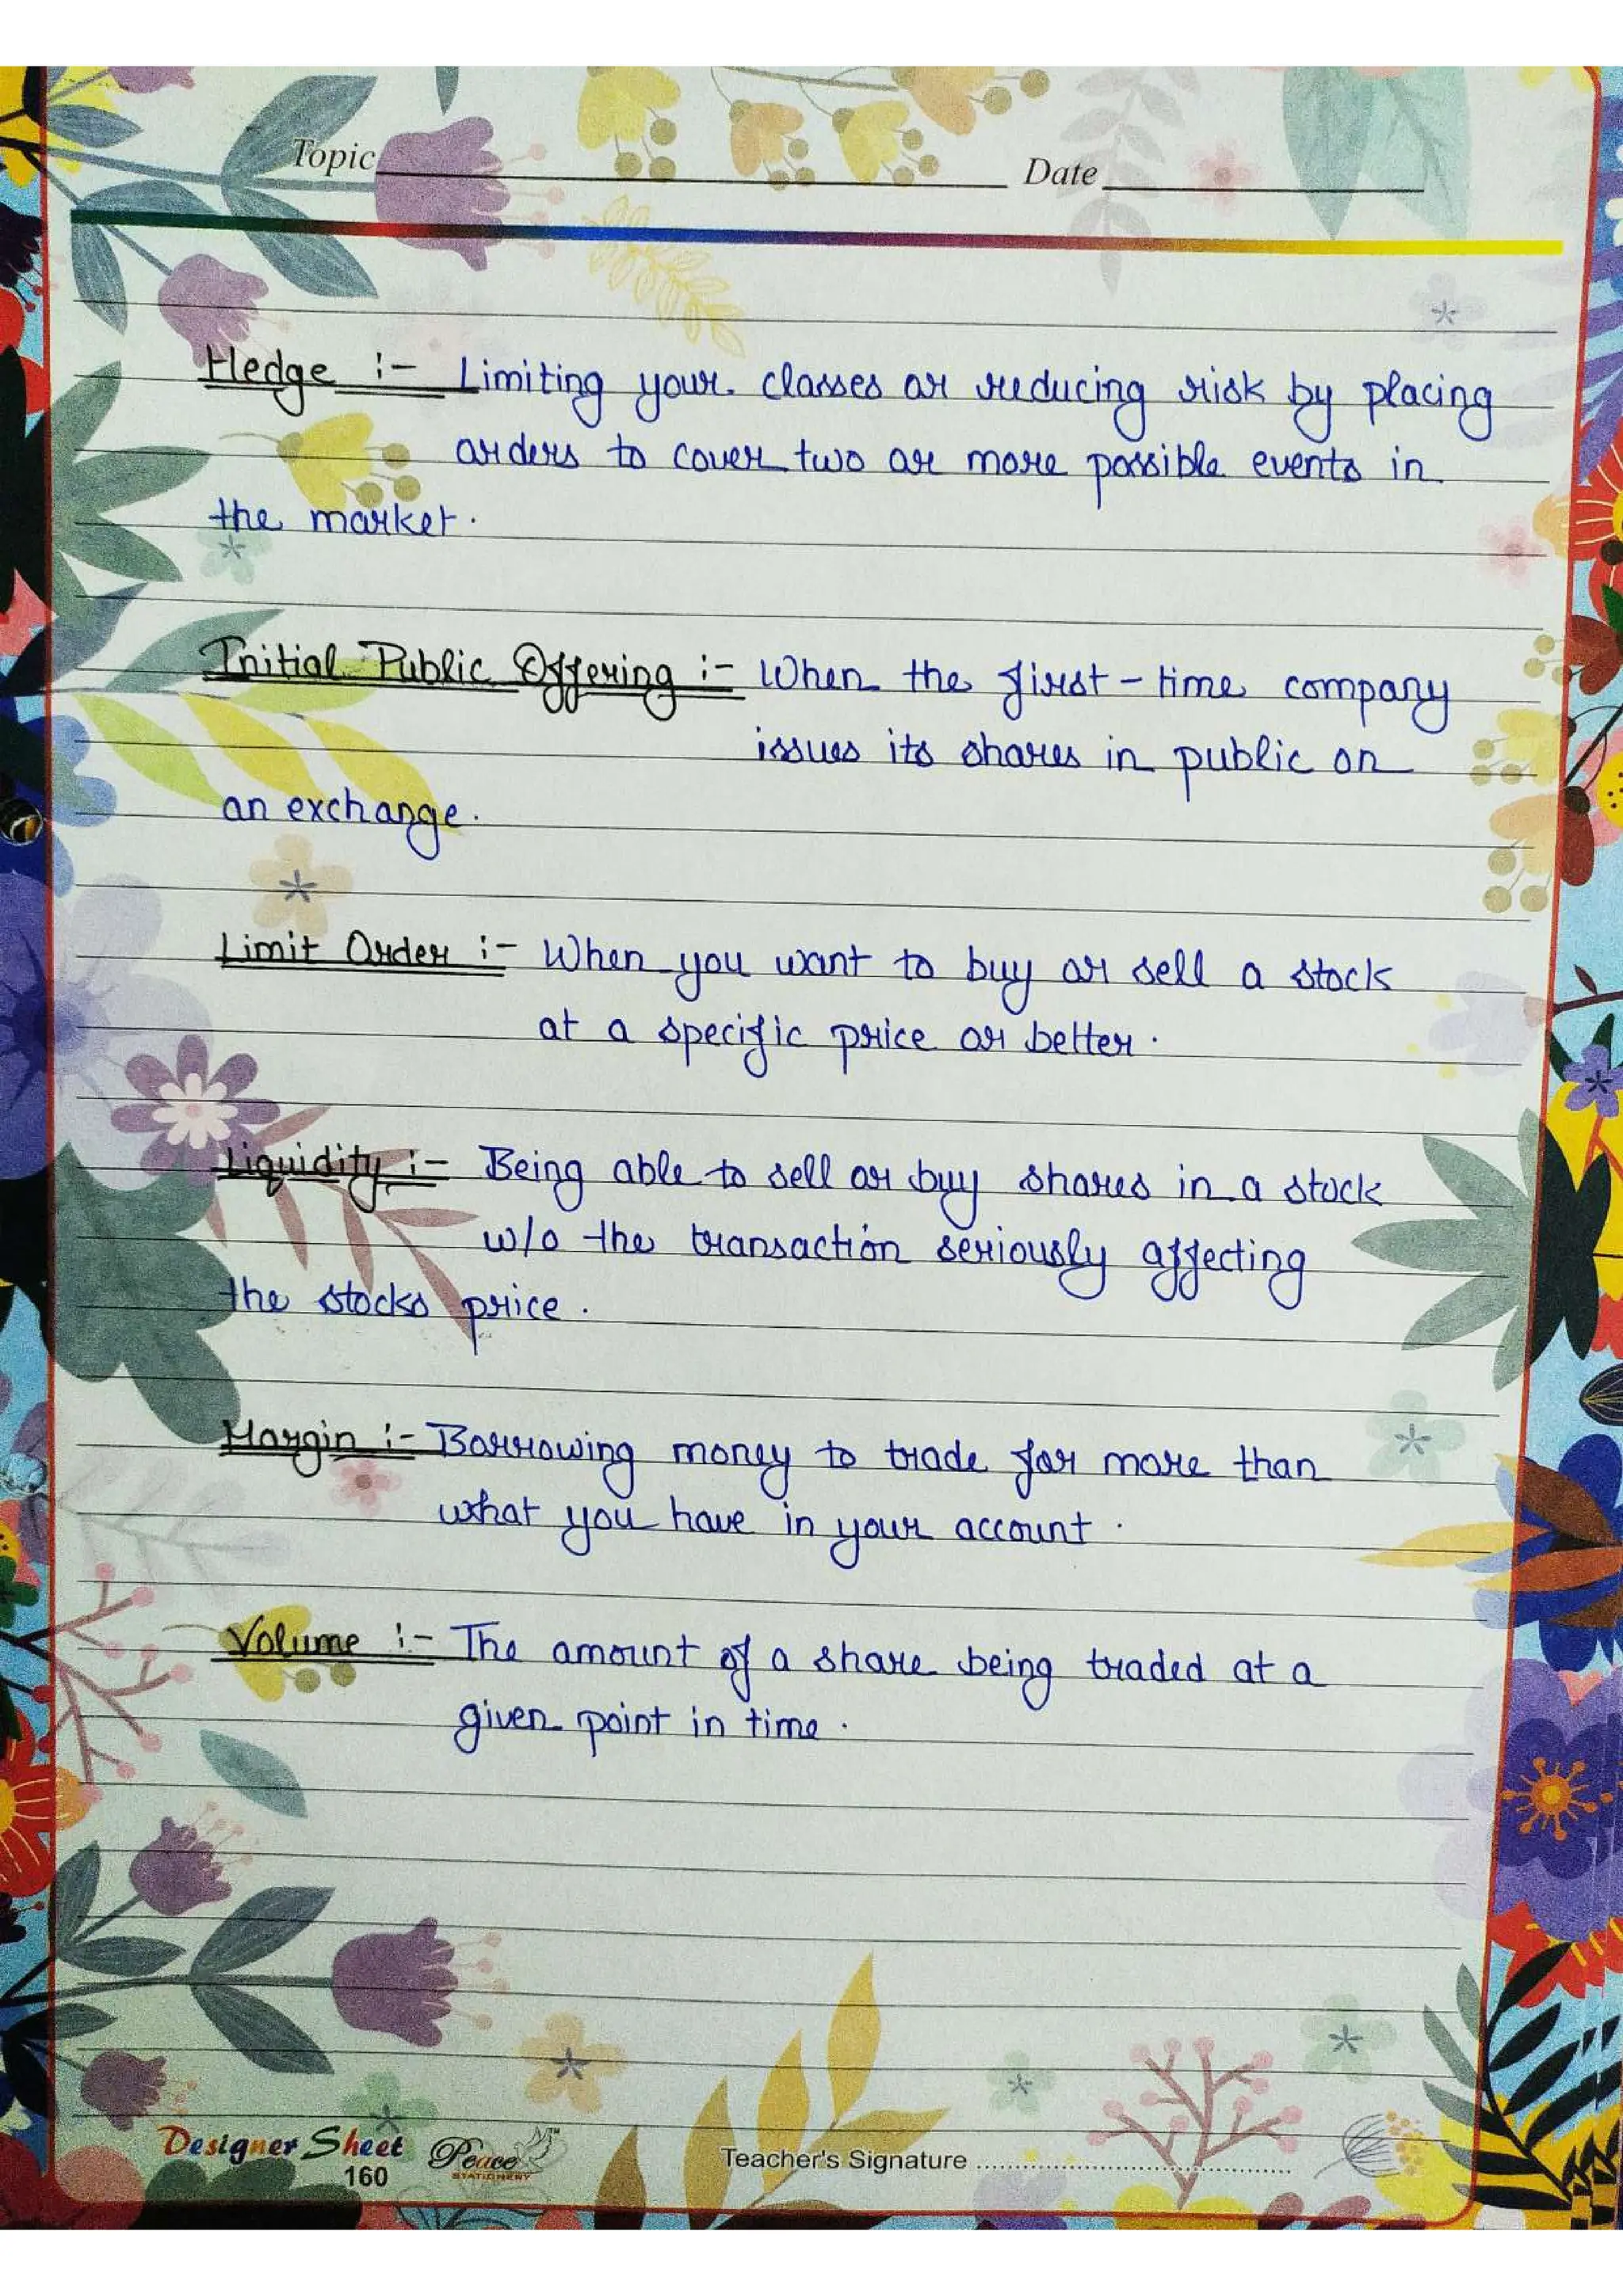 Topic Date
Hedge :- Limiting your classes or reducing risk by placing
orders to cover two or more possible events in
the market.
Initial Public Offering :- When the first-time company
issues its shares in public on
an exchange.
Limit Order :- When you want to buy or sell a stock
at a specific price or better.
Liquidity :- Being able to sell or buy shares in a stock
w/o the transaction seriously affecting
the stocks price.
Margin :- Borrowing money to trade for more than
what you have in your account.
Volume :- The amount of a share being traded at a
given point in time.
Designer Sheet Peace Teacher's Signature
160 STATIONERY